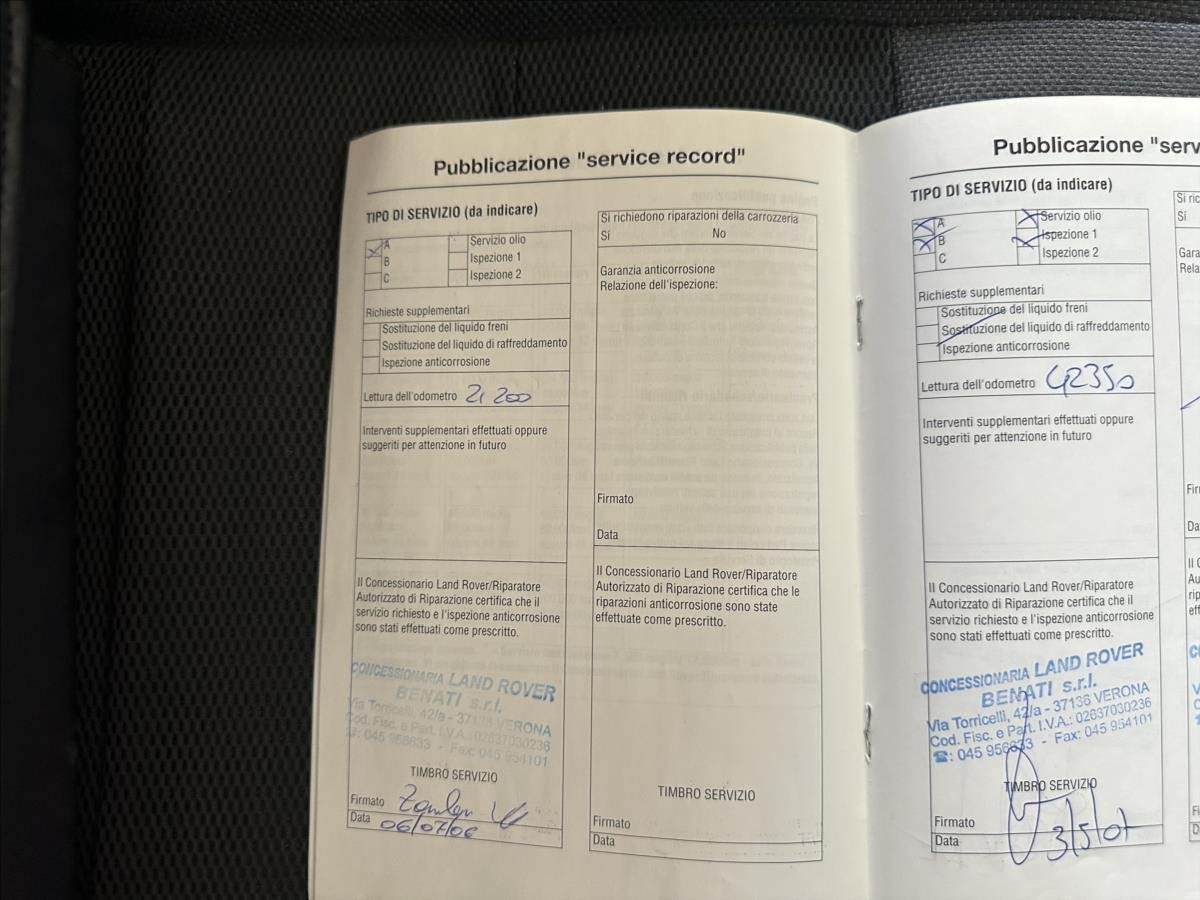 Pubblicazione "service record"
TIPO DI SERVIZIO (da indicare)
A
B
C
Servizio olio
Ispezione 1
Ispezione 2
Richieste supplementari
Sostituzione del liquido freni
Sostituzione del liquido di raffreddamento
Ispezione anticorrosione
Lettura dell'odometro 21 200
Interventi supplementari effettuati oppure
suggeriti per attenzione in futuro
Il Concessionario Land Rover/Riparatore
Autorizzato di Riparazione certifica che il
servizio richiesto e l'ispezione anticorrosione
sono stati effettuati come prescritto.
CONCESSIONARIA LAND ROVER
BENATI s.r.l.
Via Torricelli, 42/a - 37136 VERONA
Cod. Fisc. e Part. I.V.A.: 02637030236
☎: 045 956633 - Fax: 045 954101
TIMBRO SERVIZIO
Firmato
Data 06/07/06
Si richiedono riparazioni della carrozzeria
Sí No
Garanzia anticorrosione
Relazione dell'ispezione:
Firmato
Data
Il Concessionario Land Rover/Riparatore
Autorizzato di Riparazione certifica che le
riparazioni anticorrosione sono state
effettuate come prescritto.
TIMBRO SERVIZIO
Firmato
Data
Pubblicazione "serv
TIPO DI SERVIZIO (da indicare)
A
B
C
Servizio olio
Ispezione 1
Ispezione 2
Richieste supplementari
Sostituzione del liquido freni
Sostituzione del liquido di raffreddamento
Ispezione anticorrosione
Lettura dell'odometro 42350
Interventi supplementari effettuati oppure
suggeriti per attenzione in futuro
Il Concessionario Land Rover/Riparatore
Autorizzato di Riparazione certifica che il
servizio richiesto e l'ispezione anticorrosione
sono stati effettuati come prescritto.
CONCESSIONARIA LAND ROVER
BENATI s.r.l.
Via Torricelli, 42/a - 37136 VERONA
Cod. Fisc. e Part. I.V.A.: 02637030236
☎: 045 956633 - Fax: 045 954101
TIMBRO SERVIZIO
Firmato
Data 3/5/07
Si ric
Sí
Gara
Rela
Fir
Da